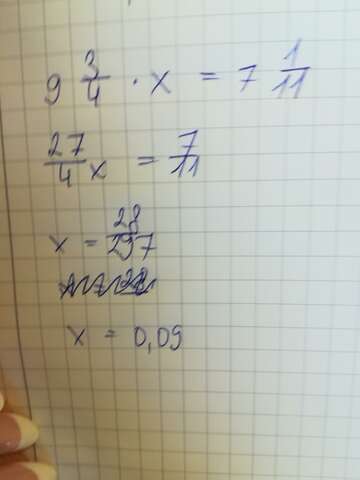 9 3/4 · x = 7 1/11
27/4 x = 7/11
x = 28/297
x = 0,09